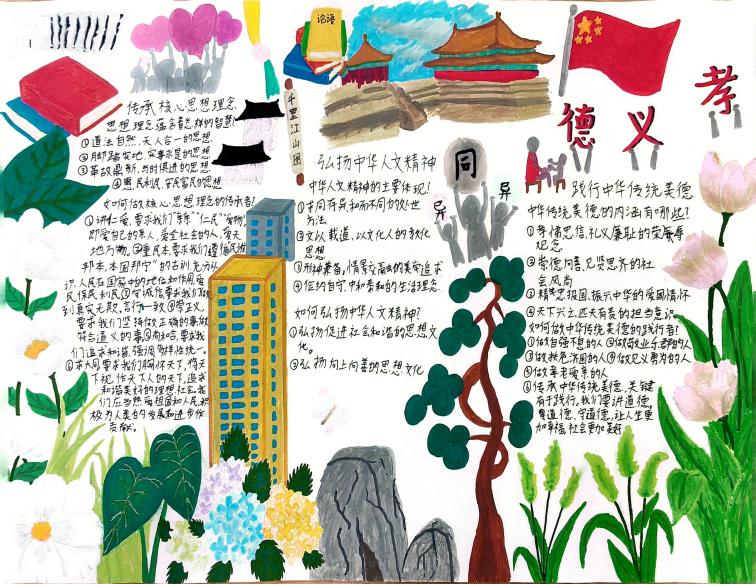 论语
千里江山图
德
义
孝
同
异
异
传承核心思想理念
思想理念蕴含着怎样的智慧?
①道法自然、天人合一的思想
②脚踏实地、实事求是的思想
③革故鼎新、与时俱进的思想
④惠民利民、安民富民的思想
如何做核心思想理念的传承者?
①讲仁爱,要求我们“亲亲”“仁民”“爱物”
即爱自己的亲人,爱全社会的人,爱天
地万物。②重民本,要求我们遵循“民惟
邦本,本固邦宁”的古训,充分认
识人民在国家中的地位和作用,爱
民保民利民。③守诚信,要求我们做
到真实无欺,言行一致。④崇正义,
要求我们坚持做正确的事,做
符合道义的事。⑤尚和合,要求我
们追求和谐,强调多样性统一。
⑥求大同,要求我们胸怀天下,倘天
下视作天下人的天下,追求
和谐美好的理想社会,我
们应当热爱祖国和人民,积
极为人类的发展和进步作
贡献。
弘扬中华人文精神
中华人文精神的主要体现!
①求同存异、和而不同的处世
方法
②文以载道、以文化人的教化
思想
③形神兼备、情景交融的美学追求
④俭约自守、中和泰和的生活理念
如何弘扬中华人文精神?
①弘扬促进社会和谐的思想文
化。
②弘扬向上向善的思想文化
践行中华传统美德
中华传统美德的内涵有哪些?
①孝悌忠信、礼义廉耻的荣辱
观念
②崇德向善、见贤思齐的社
会风尚
③精忠报国、振兴中华的爱国情怀
④天下兴亡、匹夫有责的担当意识
如何做中华传统美德的践行者!
①做自强不息的人 ②做敬业乐群的人
③做扶危济困的人 ④做见义勇为的人
⑤做孝老爱亲的人
⑥传承中华传统美德,关键
在于践行。我们要讲道德,
尊道德、守道德,让人生更
加幸福,社会更加美好